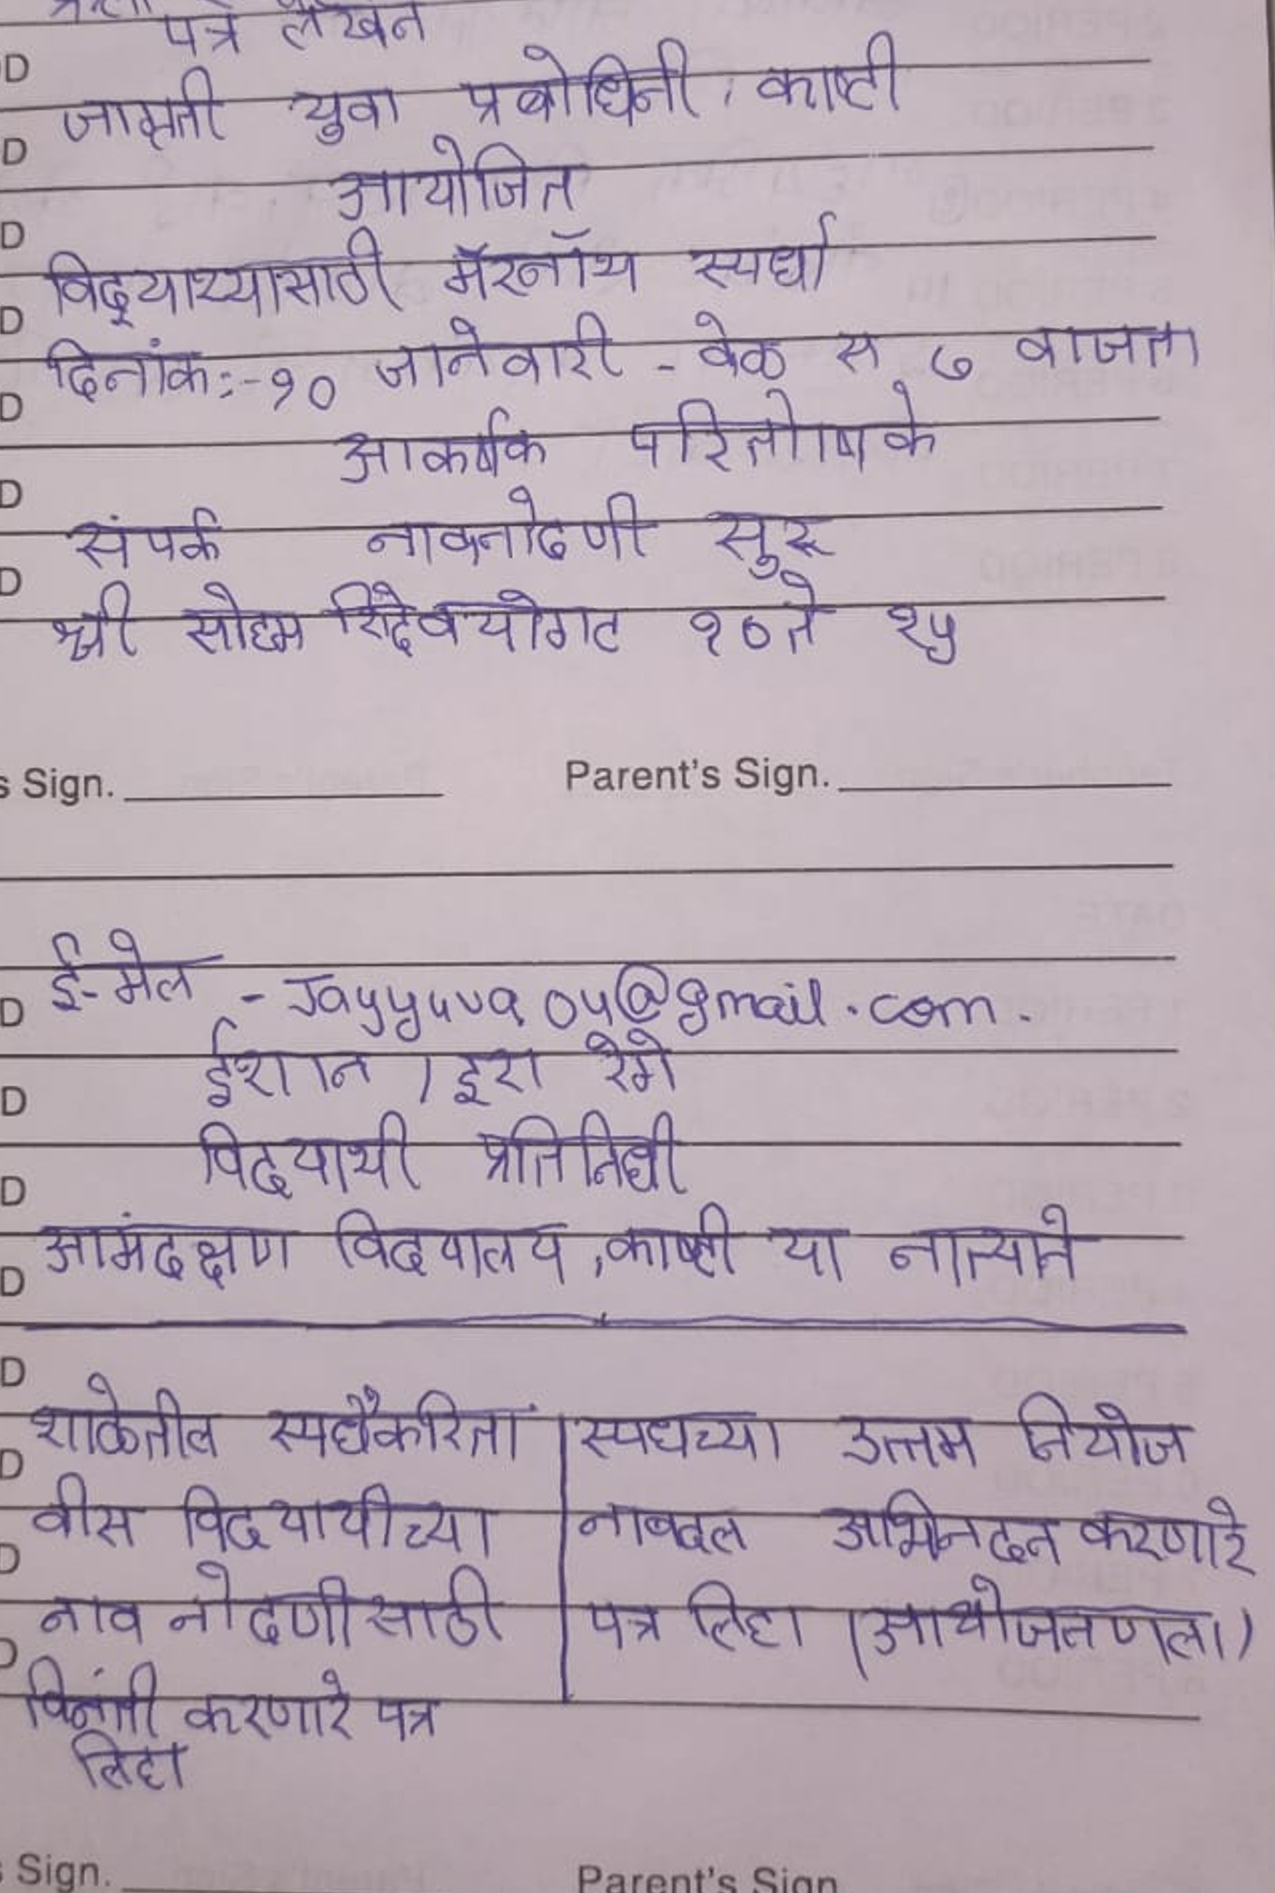 पत्र लेखन
D
जागृती युवा प्रबोधिनी, काष्टी
D
आयोजित
D
विद्यार्थ्यासाठी मॅरेनॉथ स्पर्धा
D
दिनांक:-१० जानेवारी - वेळ स ७ वाजता
D
आकर्षक परितोषिके
D
संपर्क नावनोदणी सुरू
D
श्री सोहम वयोगट १० ते १५
s Sign. Parent's Sign.
ई-मेल - Jayyuva04@gmail.com.
D
ईशान / इरा रेगे
D
विदयाथी प्रतिनिधी
D
विदयालय, काष्टी या नात्याने
D
D
शाळेतील स्पर्धेकरिता
वीस विदयाथीच्या
नाव नोदणीसाठी
विनंती करणारे पत्र
लिहा
स्पधच्या उत्तम नियोज
नाबदल अभिनदन करणारे
पत्र लिहा
D
D
D
s Sign. Parent's Sign